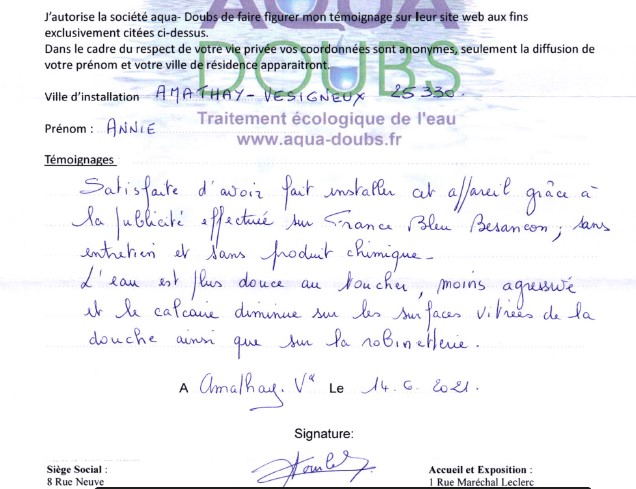 AQUA
DOUBS
J'autorise la société aqua- Doubs de faire figurer mon témoignage sur leur site web aux fins
exclusivement citées ci-dessus.
Dans le cadre du respect de votre vie privée vos coordonnées sont anonymes, seulement la diffusion de
votre prénom et votre ville de résidence apparaitront.
Ville d'installation AMATHAY-VESIGNEUX 25330.
Traitement écologique de l'eau
Prénom : ANNIE
www.aqua-doubs.fr
Témoignages
Satisfaite d'avoir fait installer cet appareil grâce à
la publicité effectué sur France Bleu Besançon ; sans
entretien et sans produit chimique.
L'eau est plus douce au toucher, moins agressive
et le calcaire diminue sur les surfaces vitrées de la
douche ainsi que sur la robinetterie.
A Amathay. Vx Le 14.6.2021.
Signature:
Siège Social :
8 Rue Neuve
Accueil et Exposition :
1 Rue Maréchal Leclerc